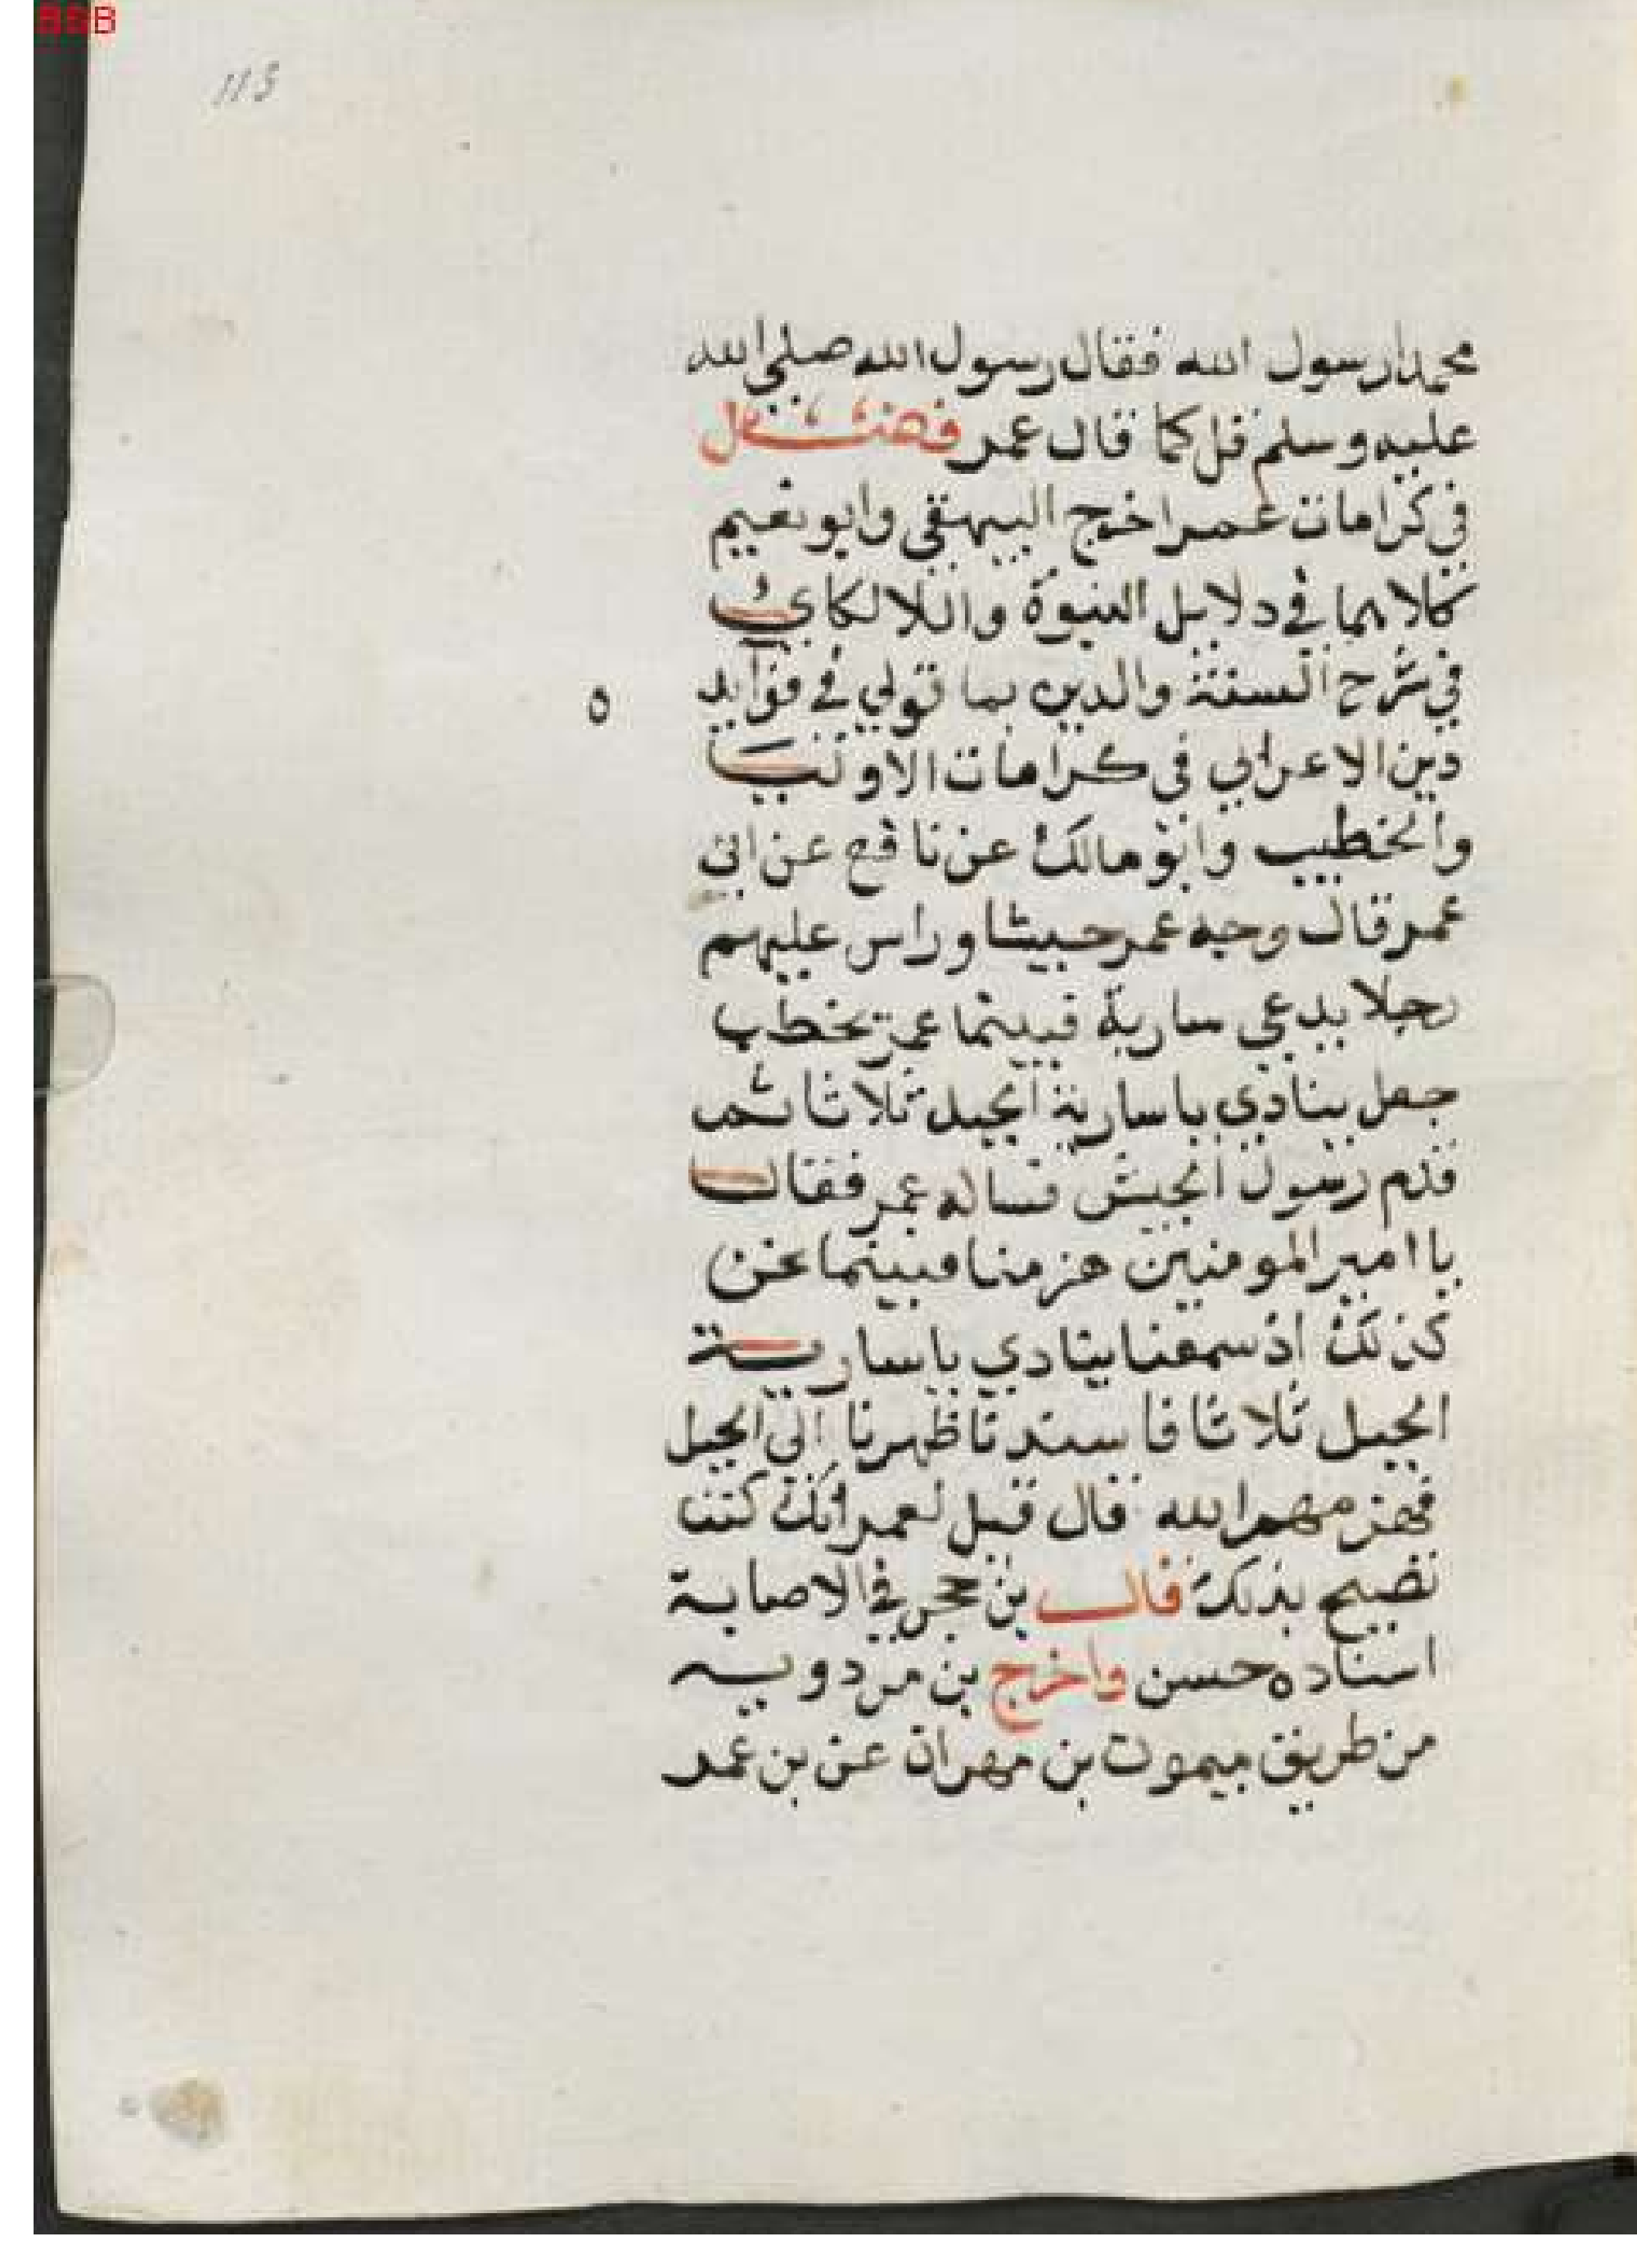 BSB
113
محمدا رسول الله فقال رسول الله صلى الله
عليه وسلم قل كما قال عمر فصل
في كرامات عمر اخرج البيهقي وابو نعيم
كلاهما في دلايل النبوة واللالكاي
في شرح السنة والدين بما تولي في فوايد
دين الاعرابي في كرامات الاوليا
والخطيب وابو مالك عن نافع عن ابن
عمر قال وجه عمر جيشا وراس عليهم
رجلا يدعي سارية فبينما عمر يخطب
جعل ينادي يا سارية الجبل ثلاثا ثم
قدم رسول الجيش فساله عمر فقال
يا امير المومنين هزمنا فبينما نحن
كذلك اذ سمعنا ينادي يا سارية
الجبل ثلاثا فاسندنا ظهرنا الي الجبل
فهزمهم الله قال قيل لعمر انك كنت
تصيح بذلك قال بن حجر في الاصابة
اسناده حسن واخرج بن مردويه
من طريق ميمون بن مهران عن بن عمر